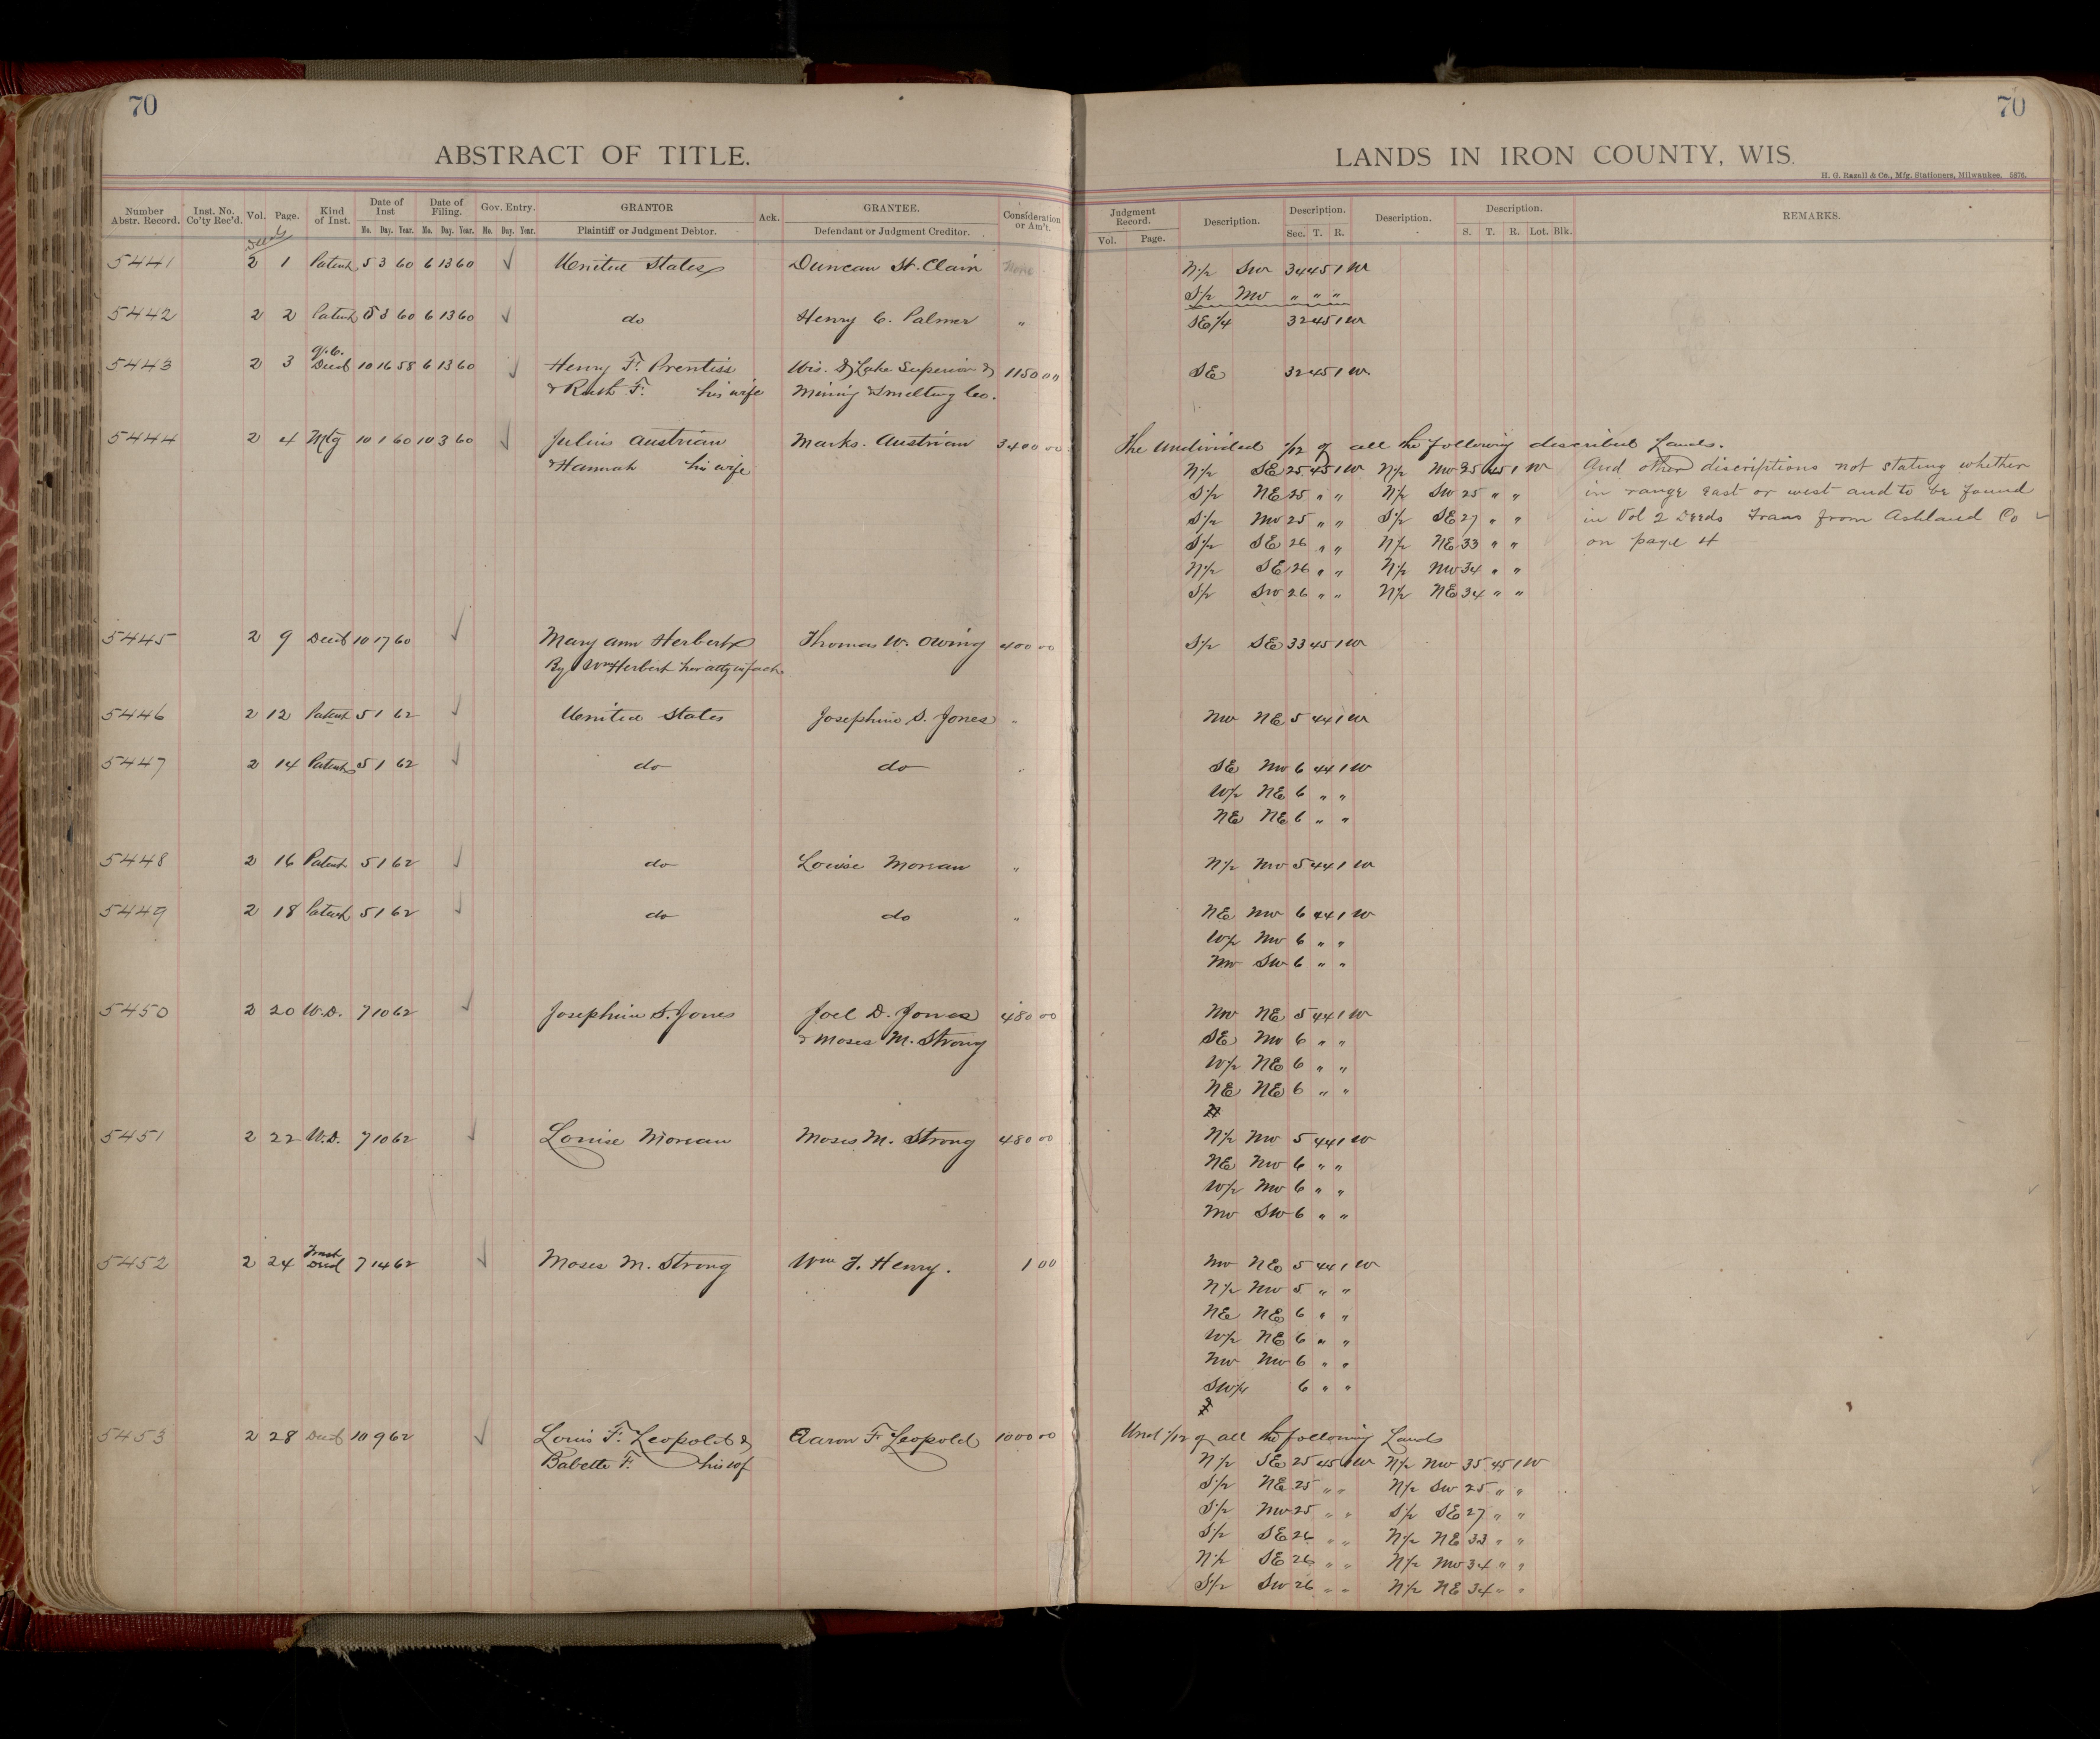 70
70
ABSTRACT OF TITLE.
LANDS IN IRON COUNTY, WIS.
H. G. Razall & Co., Mfg. Stationers, Milwaukee. 5876.
Number Abstr. Record. Inst. No. Co'ty Rec'd. Vol. Page. Kind of Inst. Date of Inst Date of Filing. Gov. Entry. GRANTOR Ack. GRANTEE. Consideration or Am't. Judgment Record. Description. Description. Description. Description. REMARKS.
Mo. Day. Year. Mo. Day. Year. Mo. Day. Year. Plaintiff or Judgment Debtor. Defendant or Judgment Creditor. Vol. Page. Sec. T. R. S. T. R. Lot. Blk.
Deeds
5441 2 1 Patent 5 3 60 6 13 60 ✓ United States Duncan St. Clair None N½ SW 34 45 1 W
S½ NW " " "
5442 2 2 Patent 5 3 60 6 13 60 ✓ do Henry C. Palmer " SE¼ 32 45 1 W
5443 2 3 Q.C. Deed 10 16 58 6 13 60 ✓ Henry F. Prentiss Wis. & Lake Superior 1150 00 SE 32 45 1 W
& Ruth F. his wife Mining & Smelting Co.
5444 2 4 Mtg 10 1 60 10 3 60 ✓ Julius Austrian Marks. Austrian 3400 00 The Undivided 1/12 of all the following described Lands.
& Hannah his wife N½ SE 25 45 1 W N½ NW 35 45 1 W And other discriptions not stating whether
S½ NE 25 " " N½ SW 25 " " in range East or west and to be found
S½ NW 25 " " S½ SE 27 " " in Vol 2 Deeds Trans from Ashland Co
S½ SE 26 " " N½ NE 33 " " on page 4
N½ SE 26 " " N½ NW 34 " "
S½ SW 26 " " N½ NE 34 " "
5445 2 9 Deed 10 17 60 ✓ Mary Ann Herbert Thomas W. Owing 400 00 S½ SE 33 45 1 W
By Wm Herbert her atty in fact
5446 2 12 Patent 5 1 62 ✓ United States Josephine S. Jones " NW NE 5 44 1 W
5447 2 14 Patent 5 1 62 ✓ do do " SE NW 6 44 1 W
W½ NE 6 " "
NE NE 6 " "
5448 2 16 Patent 5 1 62 ✓ do Louise Morean " N½ NW 5 44 1 W
5449 2 18 Patent 5 1 62 ✓ do do " NE NW 6 44 1 W
W½ NW 6 " "
NW SW 6 " "
5450 2 20 W.D. 7 10 62 ✓ Josephine S. Jones Joel D. Jones 480 00 NW NE 5 44 1 W
& Moses M. Strong SE NW 6 " "
W½ NE 6 " "
NE NE 6 " "
5451 2 22 W.D. 7 10 62 ✓ Louise Morean Moses M. Strong 480 00 N½ NW 5 44 1 W
NE NW 6 " "
W½ NW 6 " "
NW SW 6 " "
5452 2 24 Trust Deed 7 14 62 ✓ Moses M. Strong Wm F. Henry. 1 00 NW NE 5 44 1 W
N½ NW 5 " "
NE NE 6 " "
W½ NE 6 " "
NW NW 6 " "
SW½ 6 " "
5453 2 28 Deed 10 9 62 ✓ Louis F. Leopold & Aaron F. Leopold 1000 00 Und 1/12 of all the following Lands
Babette F. his wf N½ SE 25 45 1 W N½ NW 35 45 1 W
S½ NE 25 " " N½ SW 25 " "
S½ NW 25 " " S½ SE 27 " "
S½ SE 26 " " N½ NE 33 " "
N½ SE 26 " " N½ NW 34 " "
S½ SW 26 " " N½ NE 34 " "